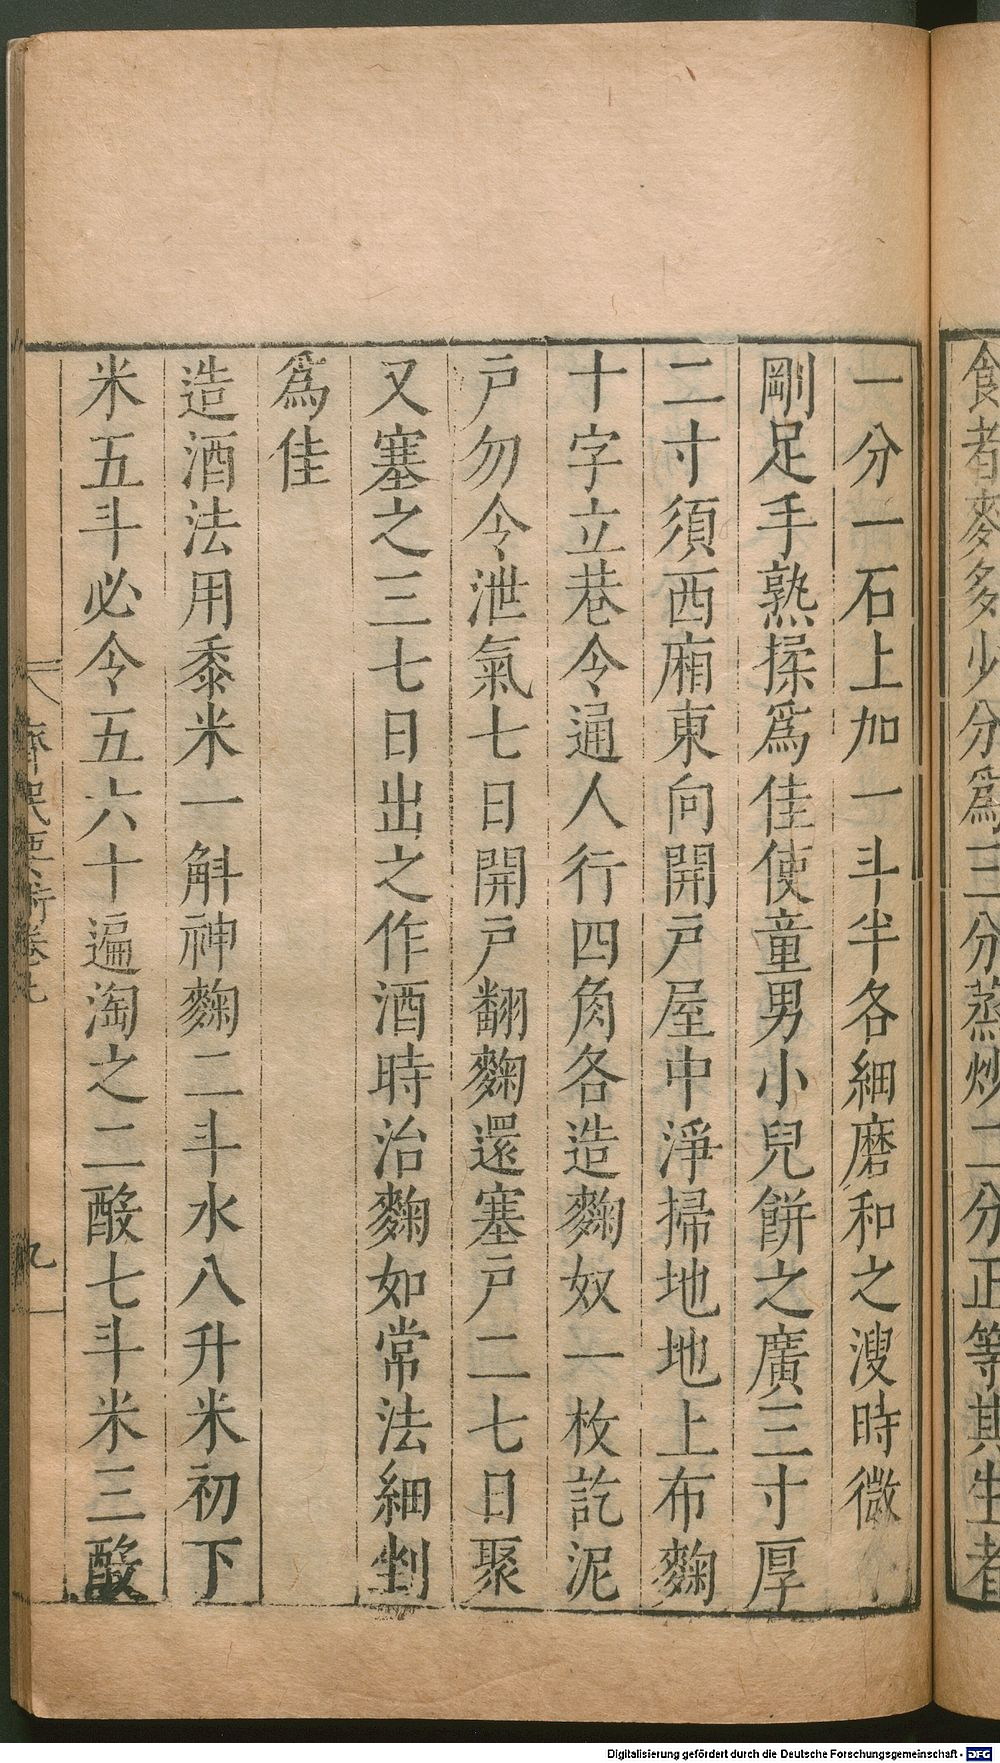 食者麥多少分爲三分蒸炒二分正等其生者
一分一石上加一斗半各細磨和之溲時微
剛足手熟揉爲佳使童男小兒餅之廣三寸厚
二寸須西廂東向開戸屋中淨掃地地上布麴
十字立巷令通人行四角各造麴奴一枚訖泥
戸勿令泄氣七日開戸翻麴還塞戸二七日聚
又塞之三七日出之作酒時治麴如常法細剉
爲佳
造酒法用黍米一斛神麴二斗水八升米初下
米五斗必令五六十遍淘之二酘七斗米三酘
齊民要術卷七
九
Digitalisierung gefördert durch die Deutsche Forschungsgemeinschaft - DFG